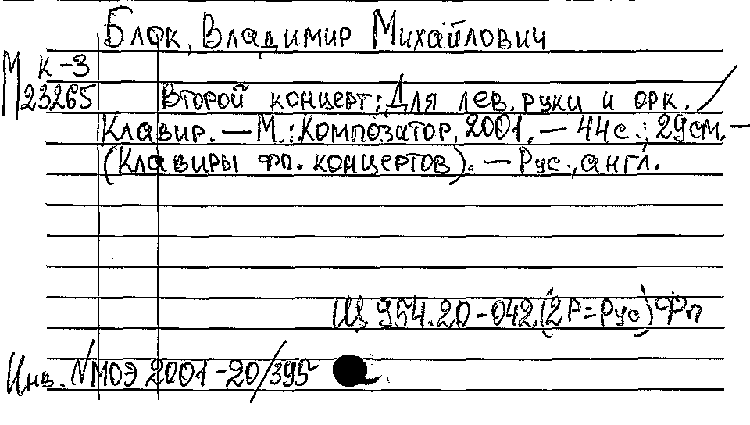 Блок, Владимир Михайлович
М к-3
23265
Второй концерт: Для лев. руки и орк. /
Клавир. — М.: Композитор, 2001. — 44с.; 29см. —
(Клавиры фп. концертов). — Рус., англ.
Щ 954.20-042.(2Р=Рус)Фп
Инв. №МОЭ 2001-20/395